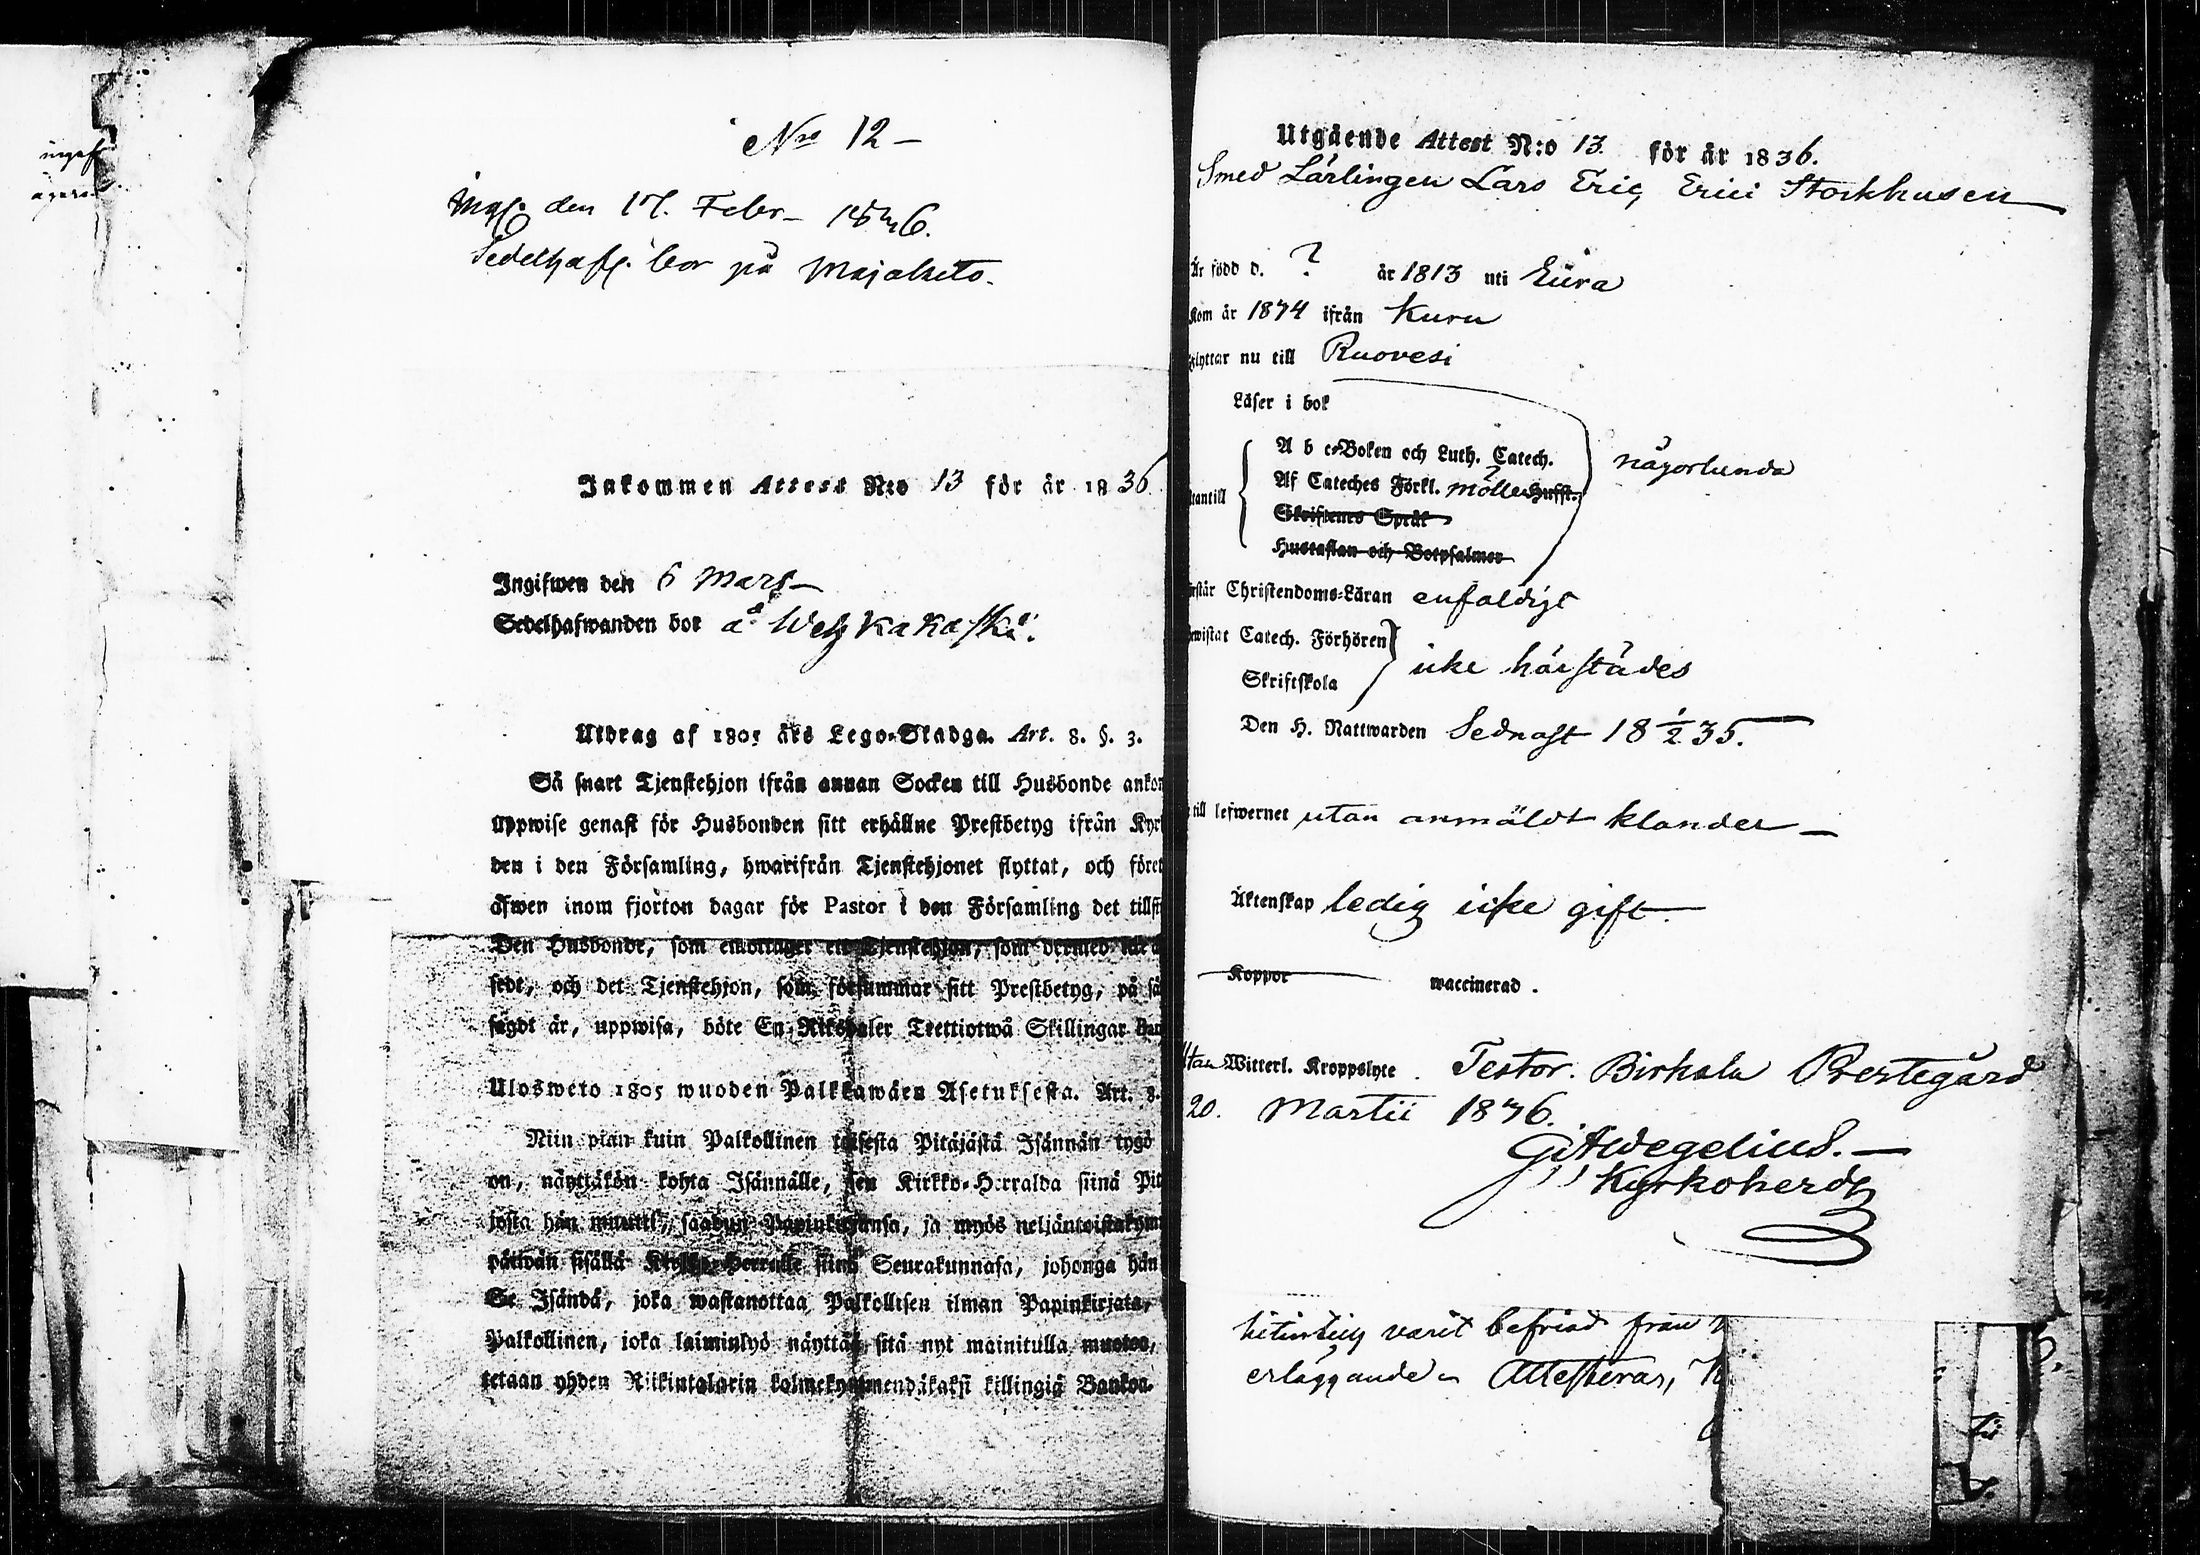 ingaf
N:o 12 –
Ingf. den 17. Febr– 1836.
Sedelhafv. bor på Majaluto.
Inkommen Attest N:o 13 för år 1836
Ingifwen den 6 Mars–
Sedelhafwanden bor å Wehkakoski.
Utdrag af 1805 års Lego-Stadga. Art. 8. §. 3.
Så snart Tjenstehjon ifrån annan Socken till Husbonde ankom
uppwise genast för Husbonden sitt erhållne Prestbetyg ifrån Kyrk
den i den Församling, hwarifrån Tjenstehjonet flyttat, och föret
äfwen inom fjorton dagar för Pastor i den Församling det tillst
Den Husbonde, som emottager en Tjenstehjon, som dermed icke ä
sedt, och det Tjenstehjon, som försummar sitt Prestbetyg, på sä
sagdt är, uppwisa, böte En Riksdaler Trettiotwå Skillingar Ban
Ulosweto 1805 wuoden Palkkawäen Asetuksesta. Art. 8.
Niin pian kuin Palkollinen toisesta Pitäjästä Isännän tygö
on, näyttäkön kohta Isännälle, sen Kirkko-Herralda siinä Pit
josta hän muutti, saadun Papinkirjansa, ja myös neljäntoistakym
päiwän sisällä Kirkko-Herralle siinä Seurakunnasa, johonga hän
Se Isändä, joka wastanottaa Palkollisen ilman Papinkirjata,
Palkollinen, joka laiminlyö näyttää sitä nyt mainitulla muotoa,
tetaan yhden Riikintalarin kolmekymmendäkaksi killingiä Bankos.
Utgående Attest N:o 13. för år 1836.
Smed Lärlingen Lars Eric Erici Stockhusen
Är född d. ? år 1813 uti Eura
Kom år 1834 ifrån Kuru
Flyttar nu till Ruovesi
Läser i bok
A b c-Boken och Luth. Catech.
Af Cateches Förkl. Möllers Hufst.
någorlunda
utantill
Skriftenes Språk
Hustaflan och Botpsalmer
Förstår Christendoms-Läran enfaldigt
Bewistat Catech. Förhören
Skriftskola
icke härstädes
Den H. Nattwarden Sednast 18 1/2 35.
till lefwernet utan anmäldt klander –
Äktenskap ledig icke gift.
Koppor waccinerad.
Utan Witterl. Kroppslyte. Testor. Birkala Prestegård
20. Martii 1836.
G. A. Wegelius. –
Kyrkoherde
varit befriad från
erläggande – Attesteras,